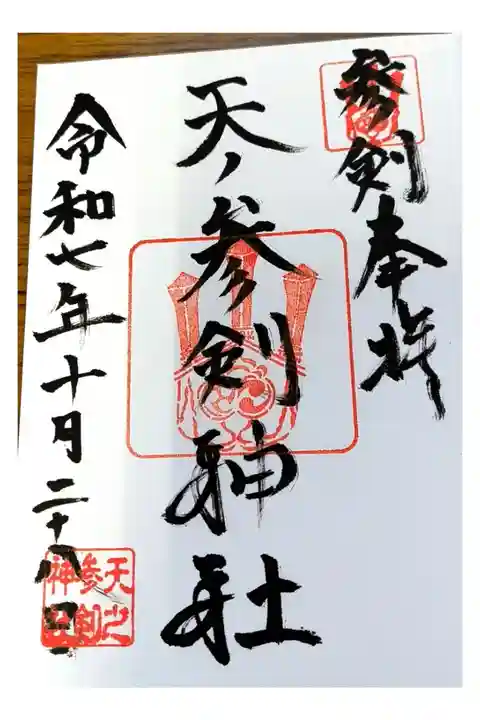 参剣奉拝
天ノ参剣神社
令和七年十月二十八日
天之
参剣
神社